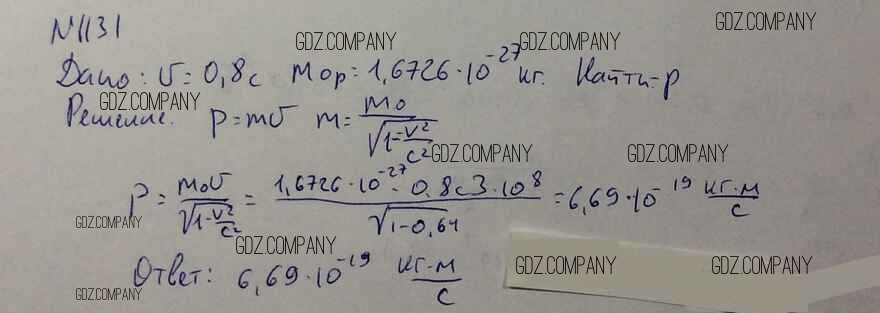 N1131
GDZ.COMPANY GDZ.COMPANY GDZ.COMPANY
Дано: υ = 0,8c m0p = 1,6726·10^-27 кг. Найти-p
GDZ.COMPANY
Решение. p = mυ m = m0/√(1-v²/c²)
GDZ.COMPANY GDZ.COMPANY
p = m0υ/√(1-v²/c²) = 1,6726·10^-27·0,8c3·10^8/√(1-0,64) = 6,69·10^-19 кг·м/с
GDZ.COMPANY
GDZ.COMPANY
Ответ: 6,69·10^-19 кг·м/с
GDZ.COMPANY GDZ.COMPANY
GDZ.COMPANY